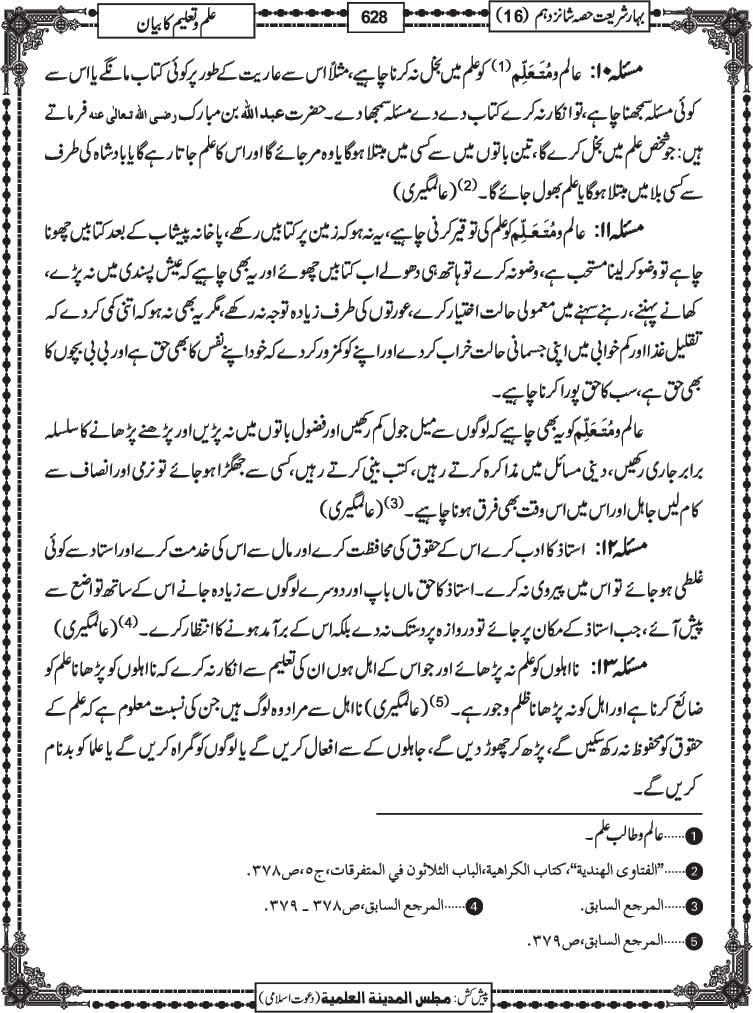 بہار شریعت حصہ شانزدہم (16)
628
علم و تعلیم کا بیان
مسئلہ ۱۰: عالم و مُتَعَلِّم (1) کو علم میں بخل نہ کرنا چاہیے، مثلاً اس سے عاریت کے طور پر کوئی کتاب مانگے یا اس سے
کوئی مسئلہ سمجھنا چاہے، تو انکار نہ کرے کتاب دے دے مسئلہ سمجھا دے۔ حضرت عبد اللہ بن مبارک رضی اللہ تعالٰی عنہ فرماتے
ہیں: جو شخص علم میں بخل کرے گا، تین باتوں میں سے کسی میں مبتلا ہوگا یا وہ مر جائے گا اور اس کا علم جاتا رہے گا یا بادشاہ کی طرف
سے کسی بلا میں مبتلا ہوگا یا علم بھول جائے گا۔ (2) (عالمگیری)
مسئلہ ۱۱: عالم و مُتَعَلِّم کو علم کی توقیر کرنی چاہیے، یہ نہ ہو کہ زمین پر کتابیں رکھے، پاخانہ پیشاب کے بعد کتابیں چھونا
چاہے تو وضو کر لینا مستحب ہے، وضو نہ کرے تو ہاتھ ہی دھولے اب کتابیں چھوئے اور یہ بھی چاہیے کہ عیش پسندی میں نہ پڑے،
کھانے پہننے، رہنے سہنے میں معمولی حالت اختیار کرے، عورتوں کی طرف زیادہ توجہ نہ رکھے، مگر یہ بھی نہ ہو کہ اتنی کمی کر دے کہ
تقلیل غذا اور کم خوابی میں اپنی جسمانی حالت خراب کر دے اور اپنے کو کمزور کر دے کہ خود اپنے نفس کا بھی حق ہے اور بی بی بچوں کا
بھی حق ہے، سب کا حق پورا کرنا چاہیے۔
عالم و مُتَعَلِّم کو یہ بھی چاہیے کہ لوگوں سے میل جول کم رکھیں اور فضول باتوں میں نہ پڑیں اور پڑھنے پڑھانے کا سلسلہ
برابر جاری رکھیں، دینی مسائل میں مذاکرہ کرتے رہیں، کتب بینی کرتے رہیں، کسی سے جھگڑا ہو جائے تو نرمی اور انصاف سے
کام لیں جاہل اور اس میں اس وقت بھی فرق ہونا چاہیے۔ (3) (عالمگیری)
مسئلہ ۱۲: استاذ کا ادب کرے اس کے حقوق کی محافظت کرے اور مال سے اس کی خدمت کرے اور استاد سے کوئی
غلطی ہو جائے تو اس میں پیروی نہ کرے۔ استاذ کا حق ماں باپ اور دوسرے لوگوں سے زیادہ جانے اس کے ساتھ تواضع سے
پیش آئے، جب استاذ کے مکان پر جائے تو دروازہ پر دستک نہ دے بلکہ اس کے برآمد ہونے کا انتظار کرے۔ (4) (عالمگیری)
مسئلہ ۱۳: نااہلوں کو علم نہ پڑھائے اور جو اس کے اہل ہوں ان کی تعلیم سے انکار نہ کرے کہ نااہلوں کو پڑھانا علم کو
ضائع کرنا ہے اور اہل کو نہ پڑھانا ظلم و جور ہے۔ (5) (عالمگیری) نااہل سے مراد وہ لوگ ہیں جن کی نسبت معلوم ہے کہ علم کے
حقوق کو محفوظ نہ رکھ سکیں گے، پڑھ کر چھوڑ دیں گے، جاہلوں کے سے افعال کریں گے یا لوگوں کو گمراہ کریں گے یا علما کو بدنام
کریں گے۔
1 ......عالم و طالب علم۔
2 ......"الفتاوی الھندیة"، کتاب الکراھیة، الباب الثلاثون في المتفرقات، ج٥، ص٣٧٨.
3 ......المرجع السابق. 4 ......المرجع السابق، ص٣٧٨ ـ ٣٧٩.
5 ......المرجع السابق، ص٣٧٩.
پیش کش: مجلس المدینة العلمیة (دعوت اسلامی)